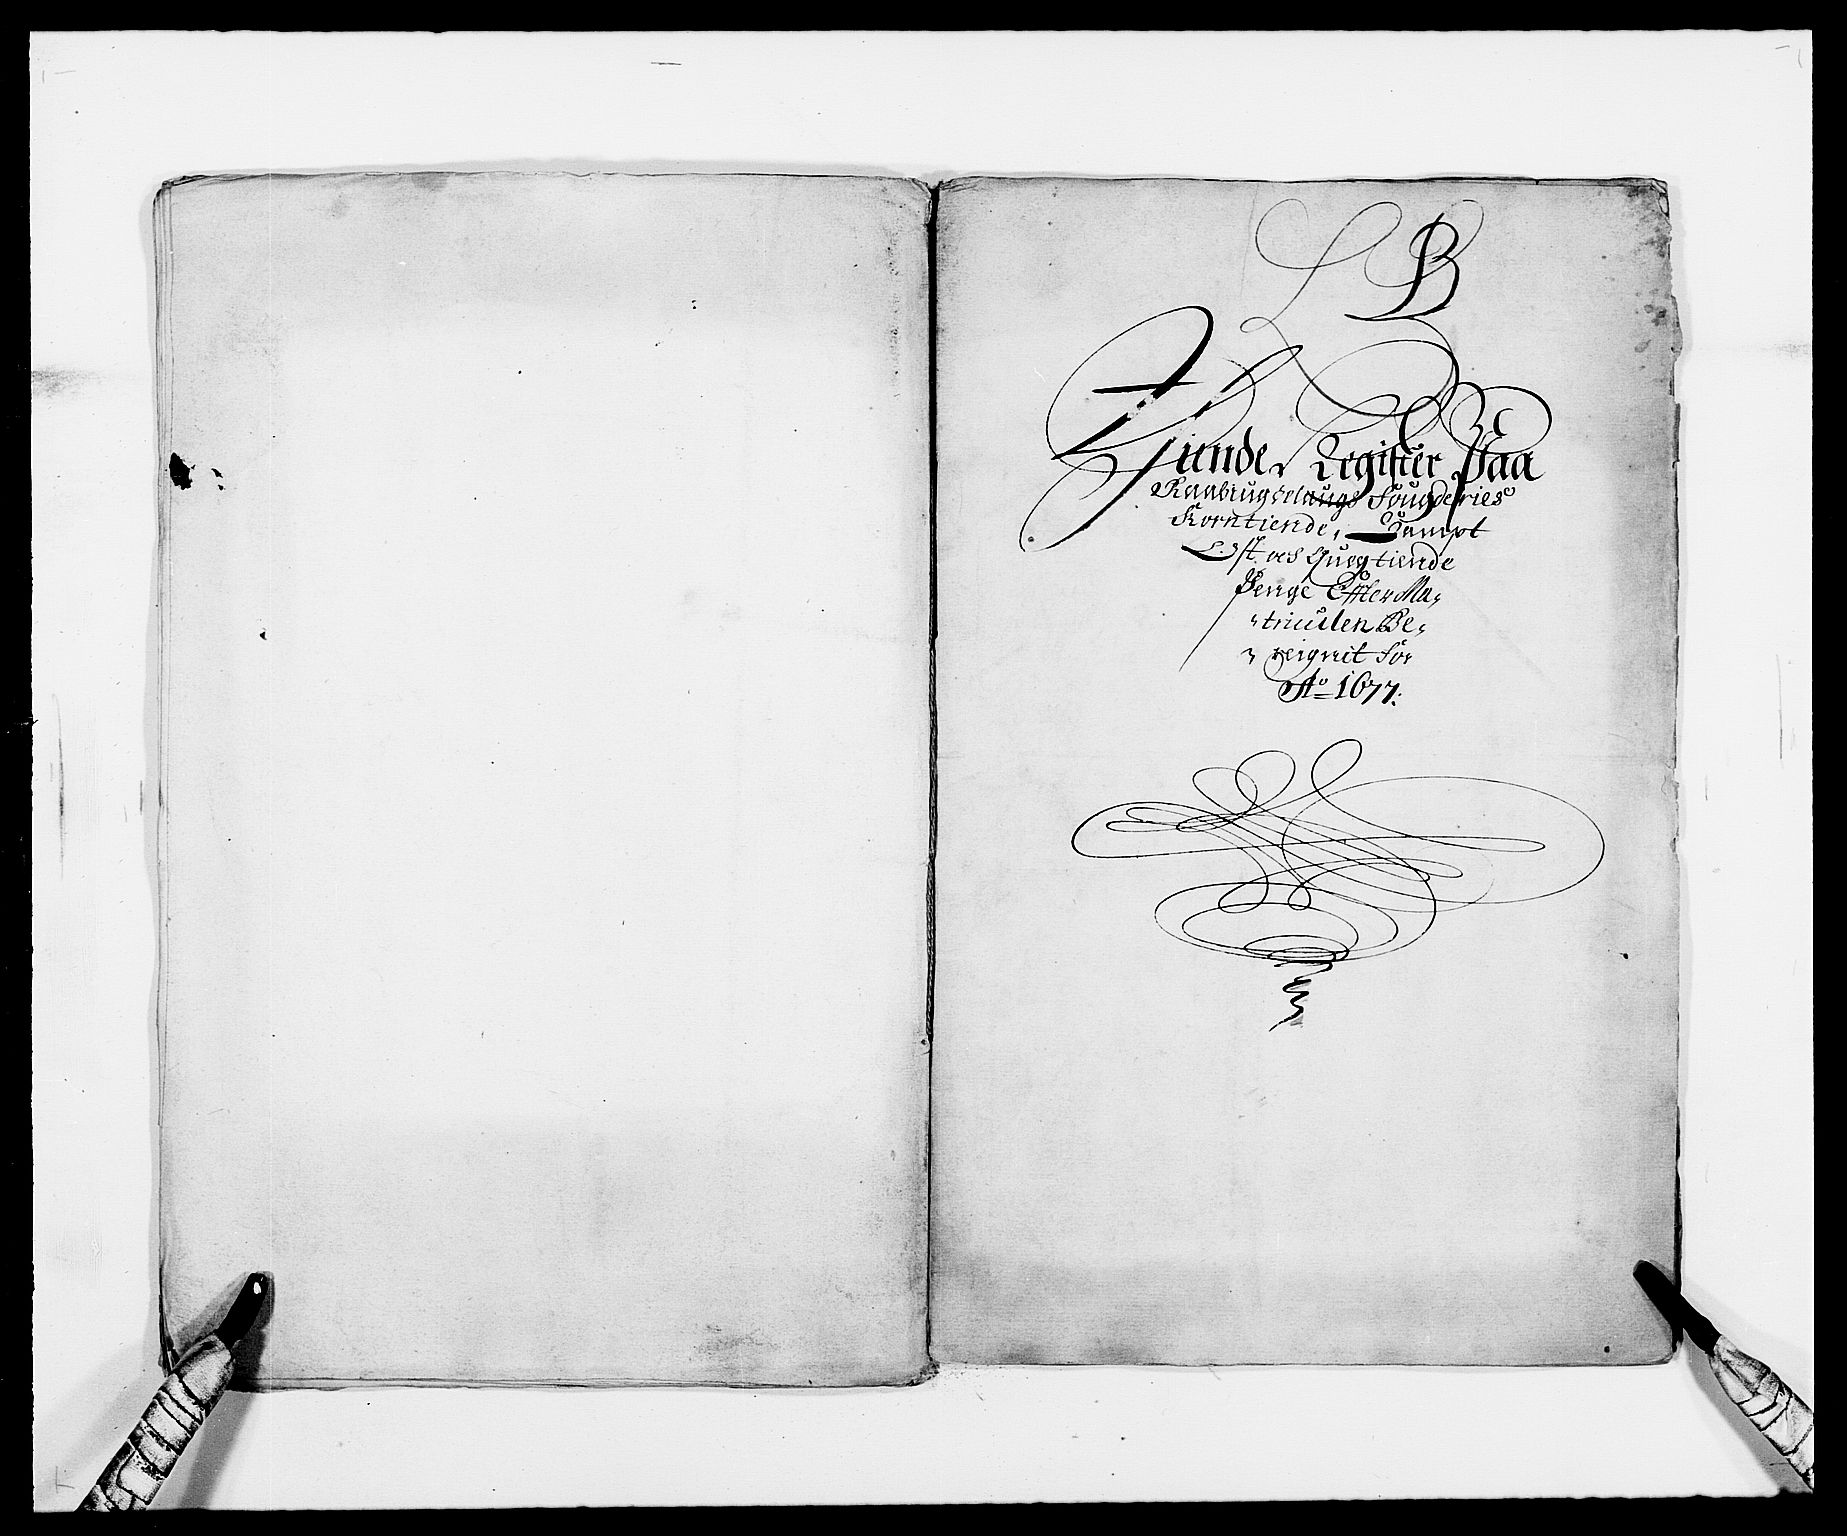 B
Tiende, Register Paa
Raabÿugdelaugs Fougderies
Korntiende, Sampt
Ost och Quegtiende
Penge Effter Ma,
,triculen Be,
, reignit for
Aº 1677.